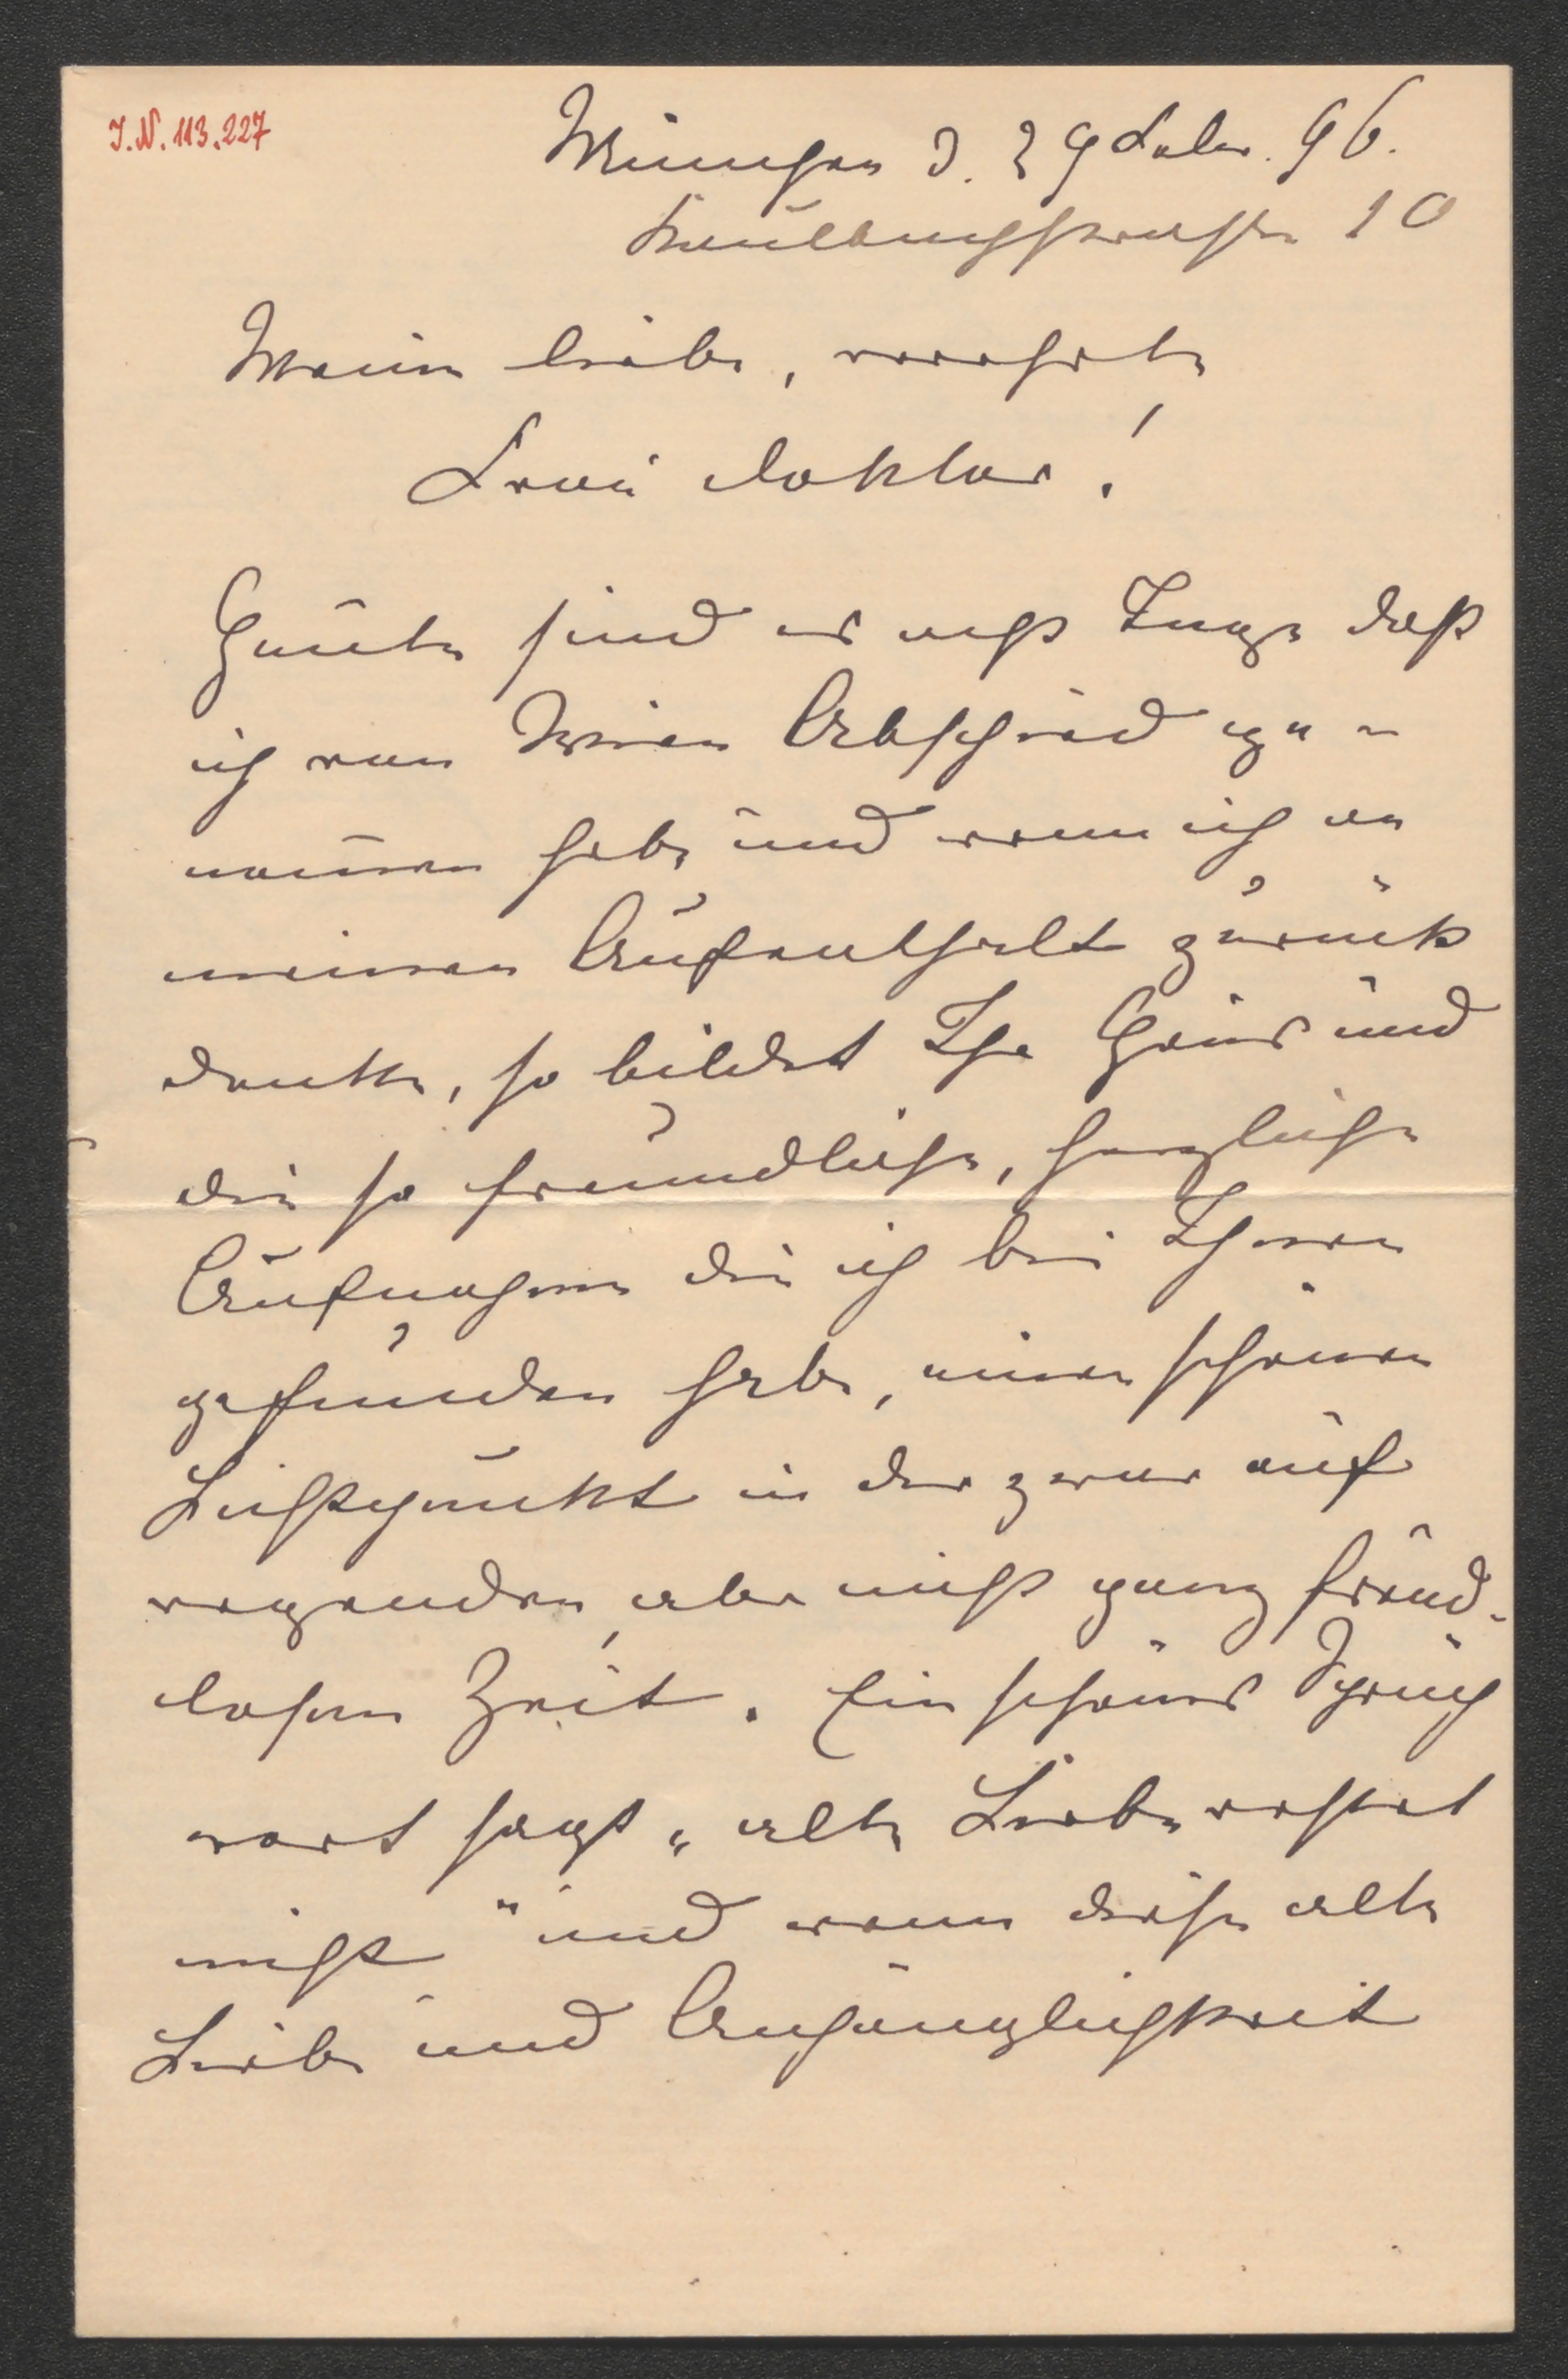 J.N. 113.227
München d. 29 Febr. 96.
Kaulbachstrasse 10
Meine liebe, verehrte
Frau Doktor!
Heute sind es acht Tage daß
ich von Wien Abschied ge-
nommen habe und wenn ich an
meinen Aufenthalt zurück
denke, so bildet Ihr Haus und
die so freundliche, herzliche
Aufnahme die ich bei Ihnen
gefunden habe, einen schönen
Lichtpunkt in der zwar auf
regenden, aber nicht ganz freud-
losen Zeit. Ein schönes Sprüch
wort sagt „alte Liebe rostet
nicht" und wenn diese alte
Liebe und Anhänglichkeit